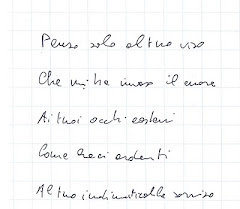 Penso solo al tuo viso
Che mi ha invaso il cuore
Ai tuoi occhi
Come ardenti
Al tuo indimenticabile sorriso